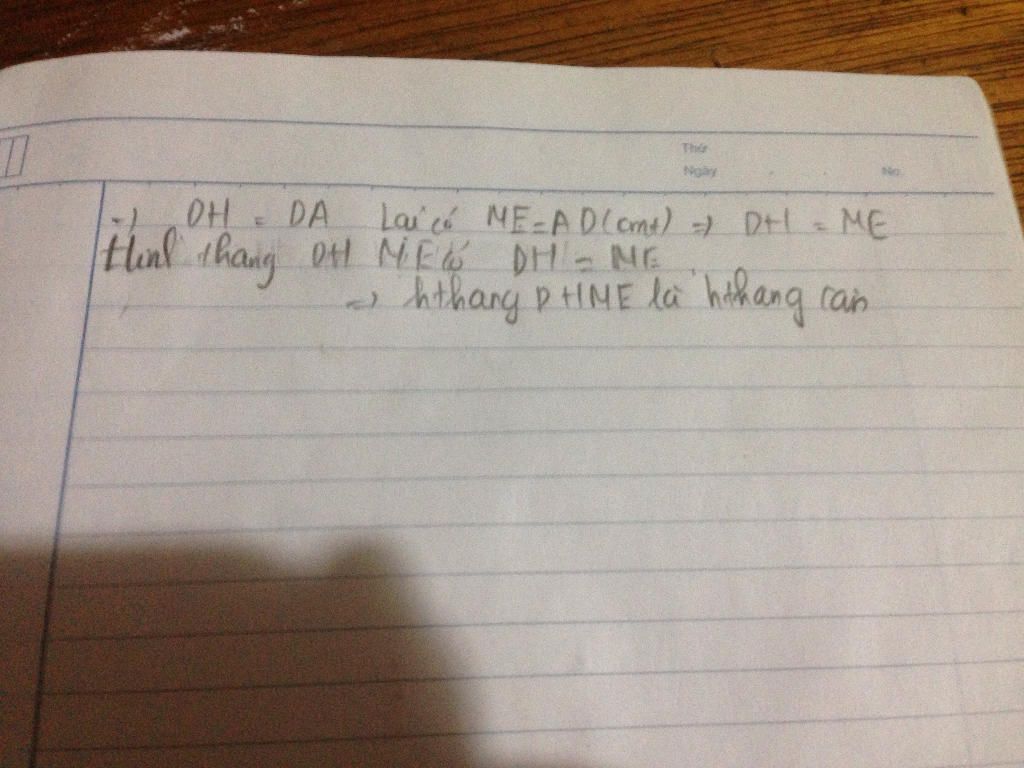 Thứ
Ngày No.
=) DH = DA Lại có ME = AD (cmt) => DH = ME
Hình thang DH ME có DH = ME
=) hthang DHME là hthang cân